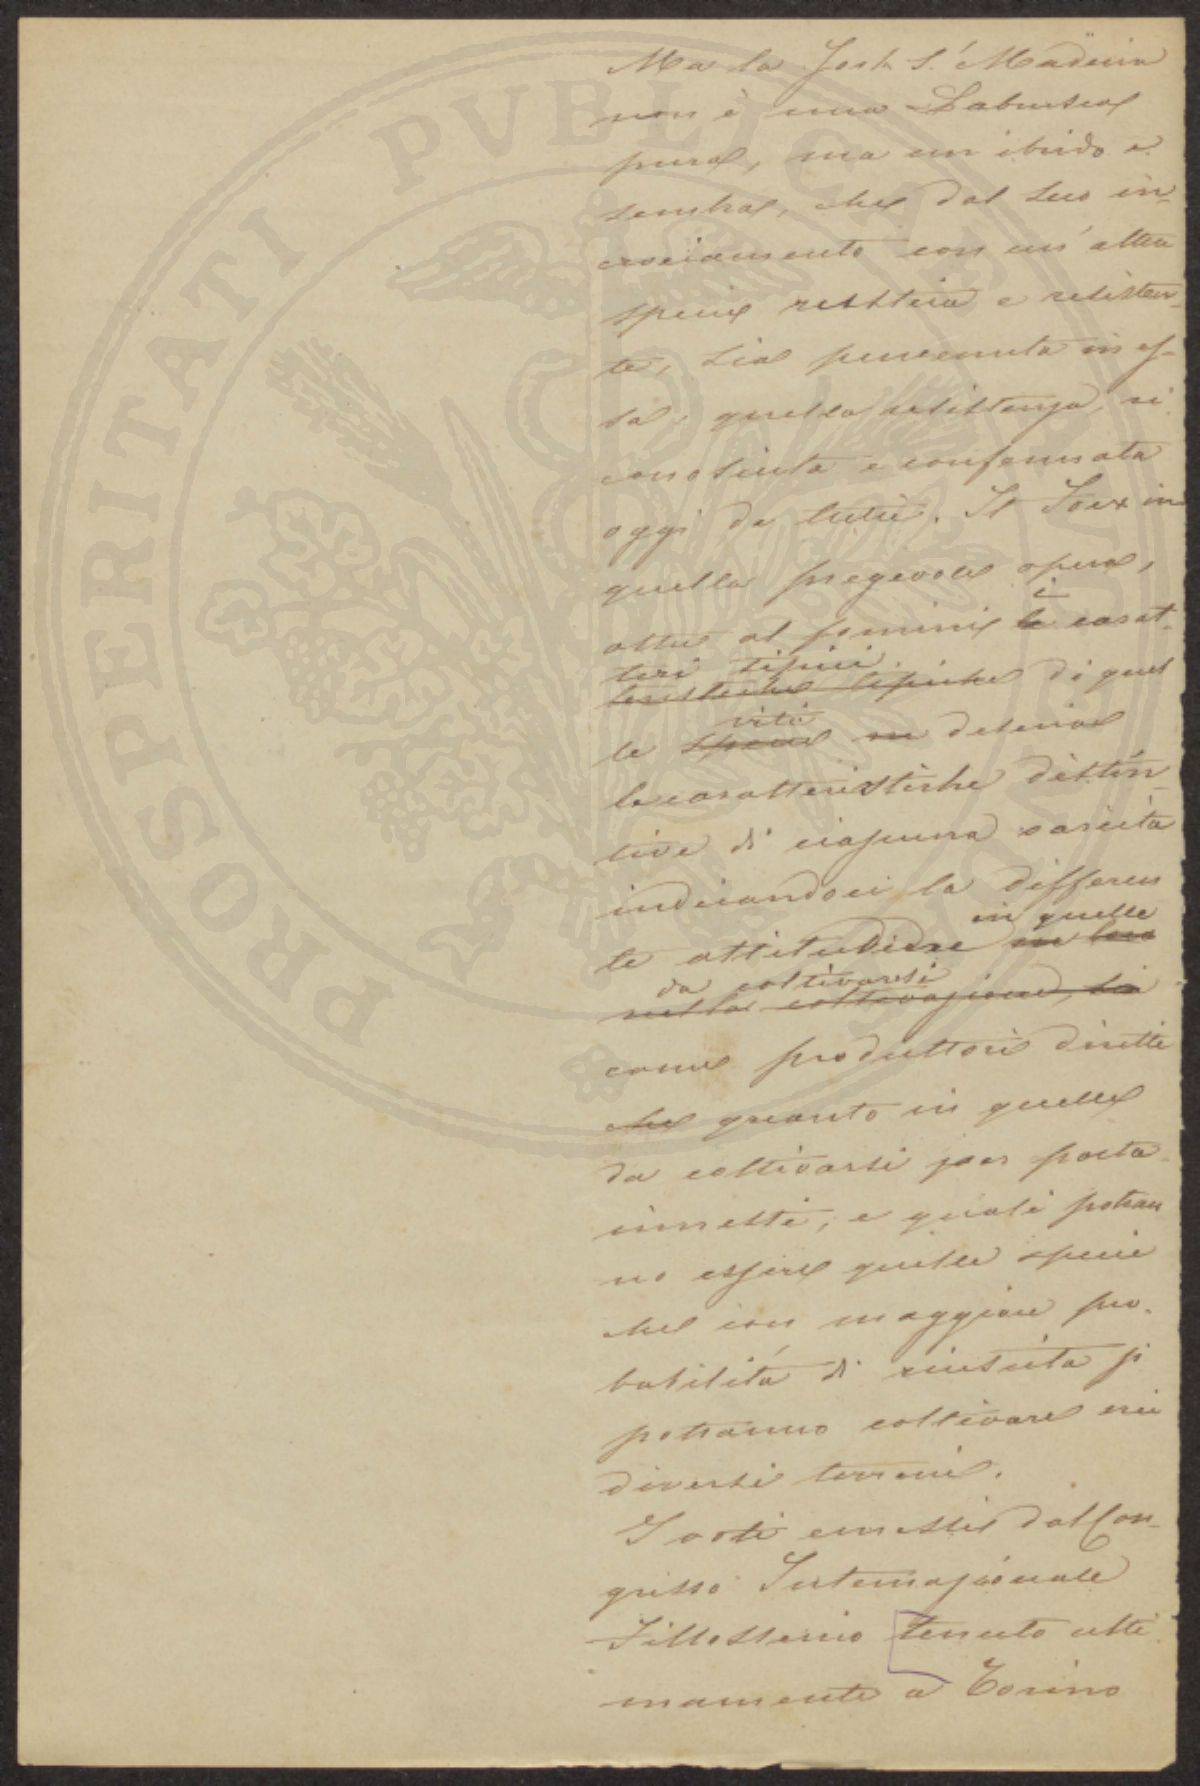 Ma la York's Madeira
non è una Labrusca
pura, ma un ibrido e
sembra, che dal suo in-
crociamento con un'altra
specie selvatica e resisten-
te, sia pervenuta in es-
sa, quella resistenza, ri
conosciuta e confermata
oggi da tutti. Il Foex in
quella pregevole opera,
oltre al fornirci le i carat-
teri tipici
teristiche tipiche di quel
le specie viti ne descrive
le caratteristiche distin-
tive di ciascuna varietà
indicandoci la differen
te attitudine in loro in quelle
da coltivarsi
nella coltivazione, sia
come produttori diretti
che quanto in quelle
da coltivarsi per porta-
innesti, e quali potran
no essere quelle specie
che con maggiore pro-
babilità di riuscita si
potranno coltivare nei
diversi terreni.
I voti emessi dal Con-
gresso Internazionale
Fillosserico tenuto ulti
mamente a Torino
PROSPERITATI PVBLICAE